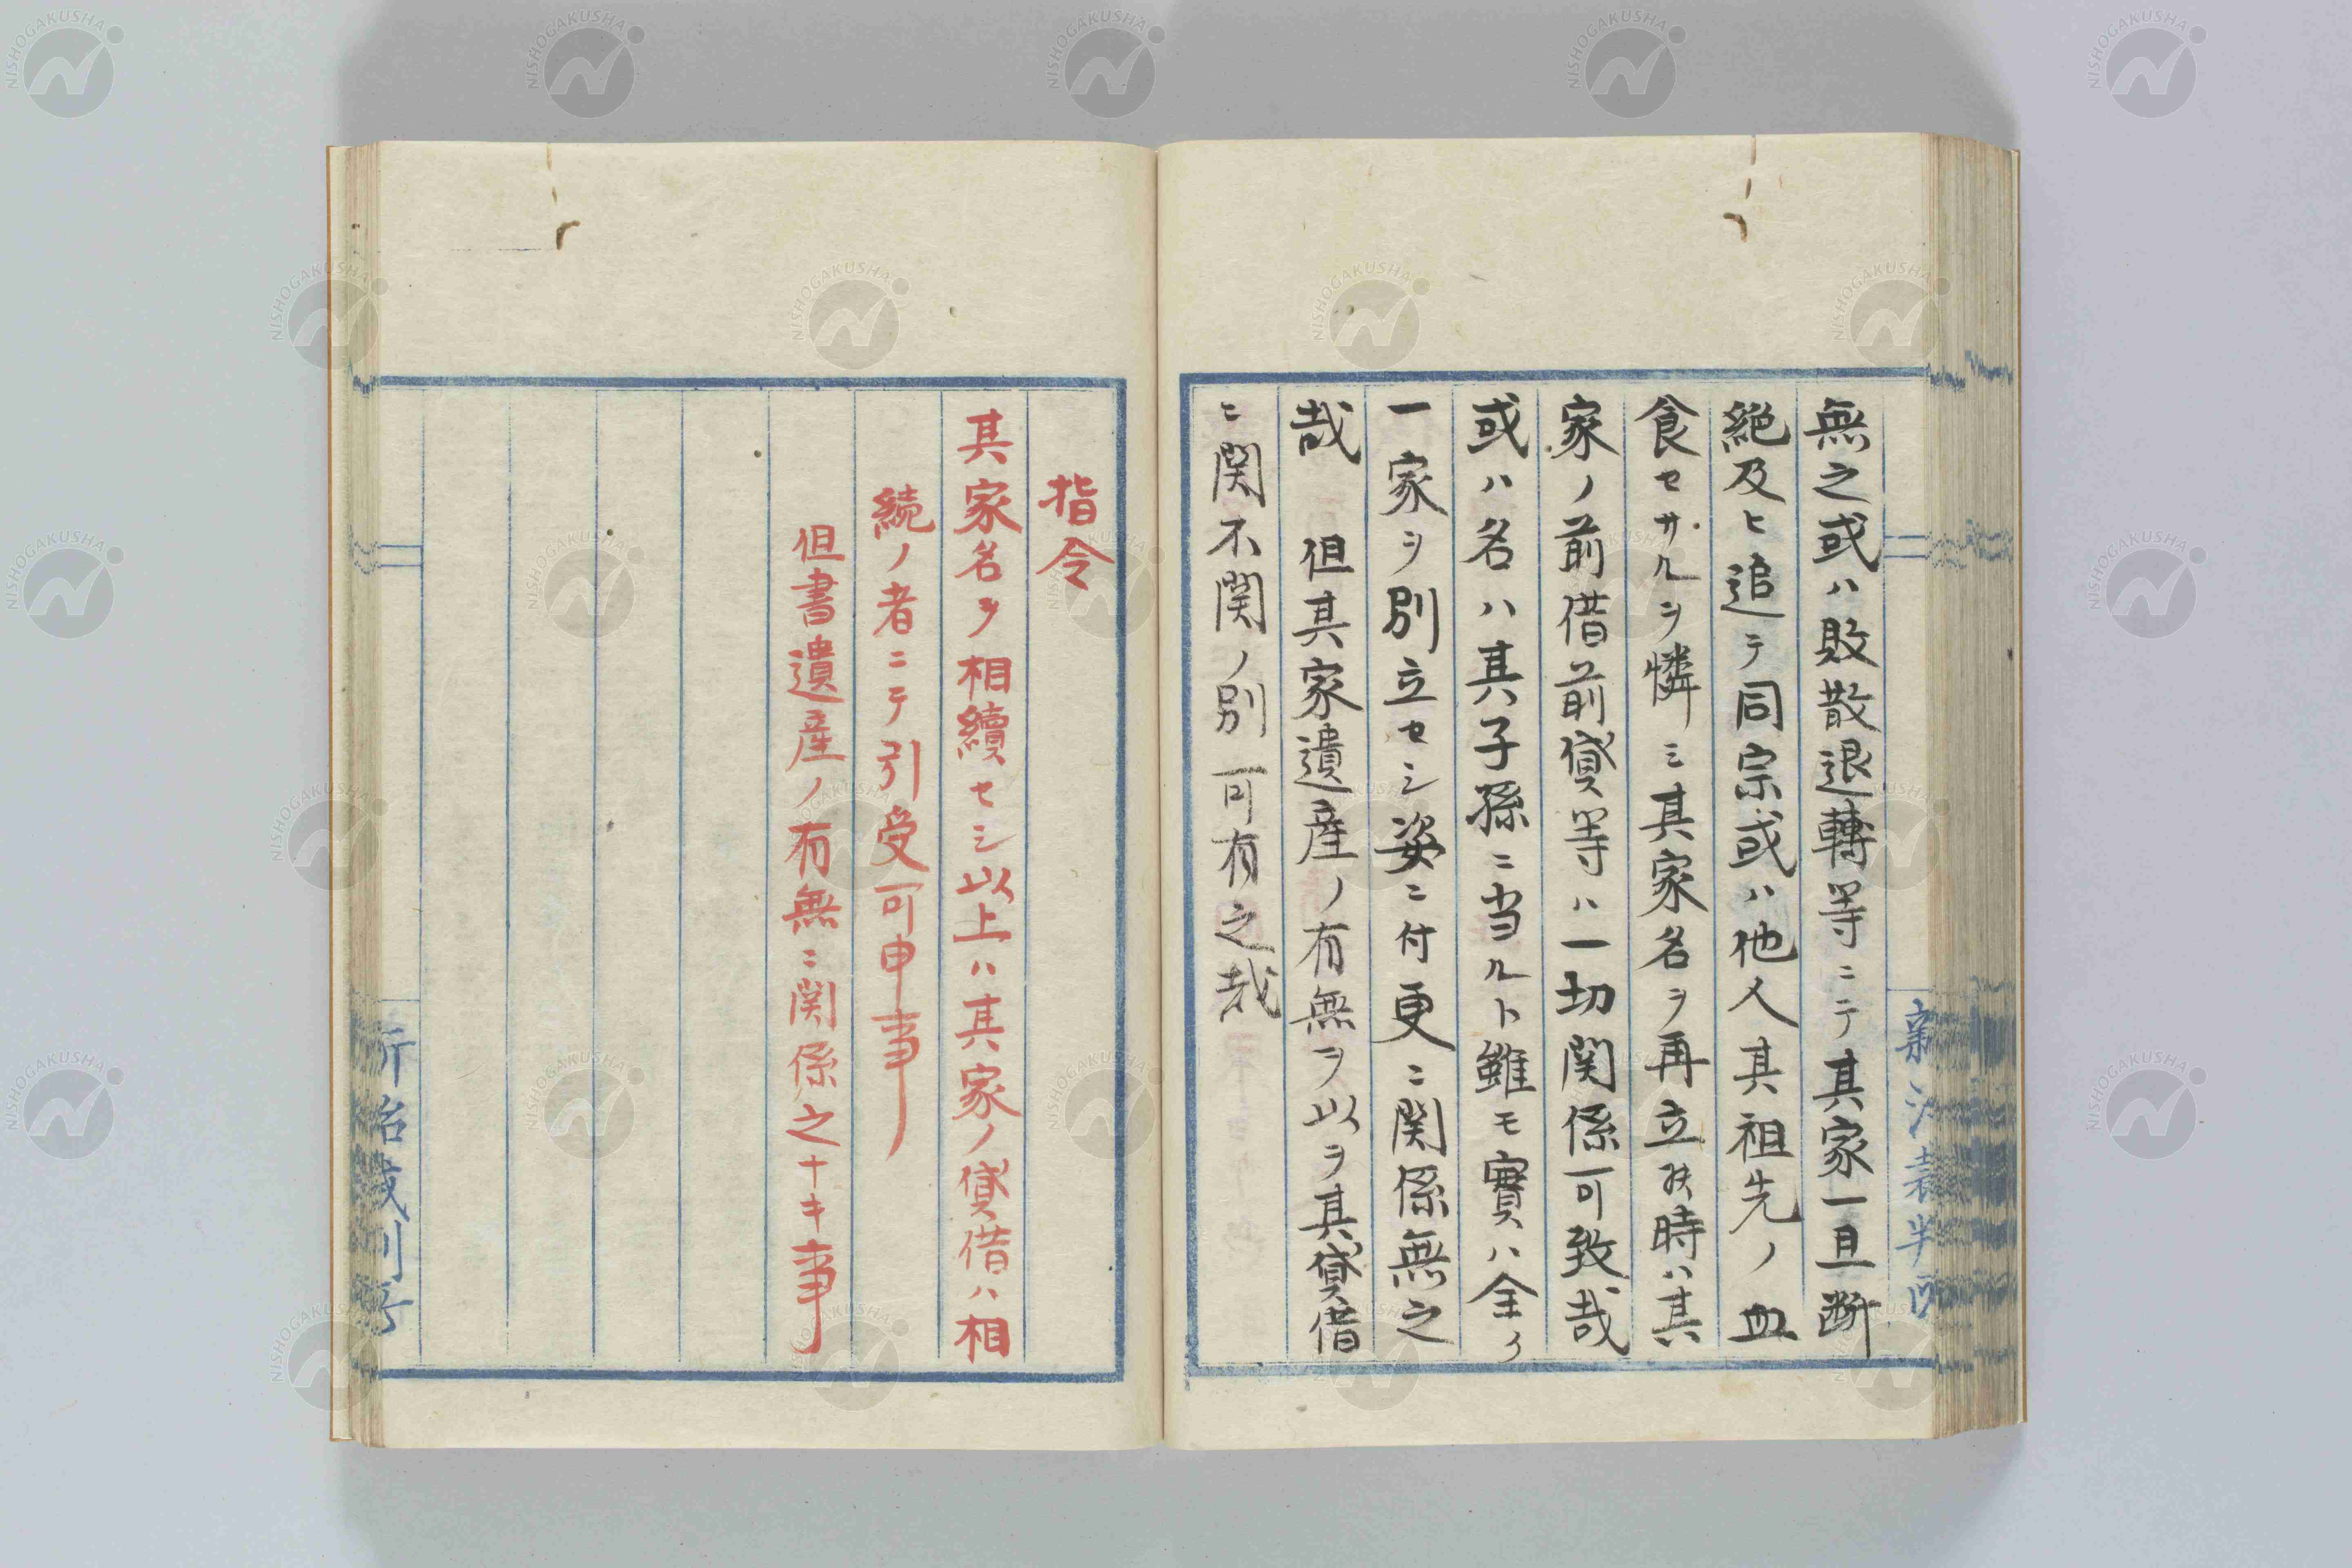 無之或ハ敗散退轉等ニテ其家一旦断
絶及ヒ追テ同宗或ハ他人其祖先ノ血
食セサルヲ憐ミ其家名ヲ再立スル時ハ其
家ノ前借前貸等ハ一切関係可致哉
或ハ名ハ其子孫ニ当ルト雖モ實ハ全ク
一家ヲ別立セシ姿ニ付更ニ関係無之
哉 但其家遺産ノ有無ヲ以ヲ其貸借
ニ関不関ノ別可有之哉
指令
其家名ヲ相續セシ以上ハ其家ノ貸借ハ相
続ノ者ニテ引受可申事
但書遺産ノ有無ニ関係之ナキ事
NISHOGAKUSHA